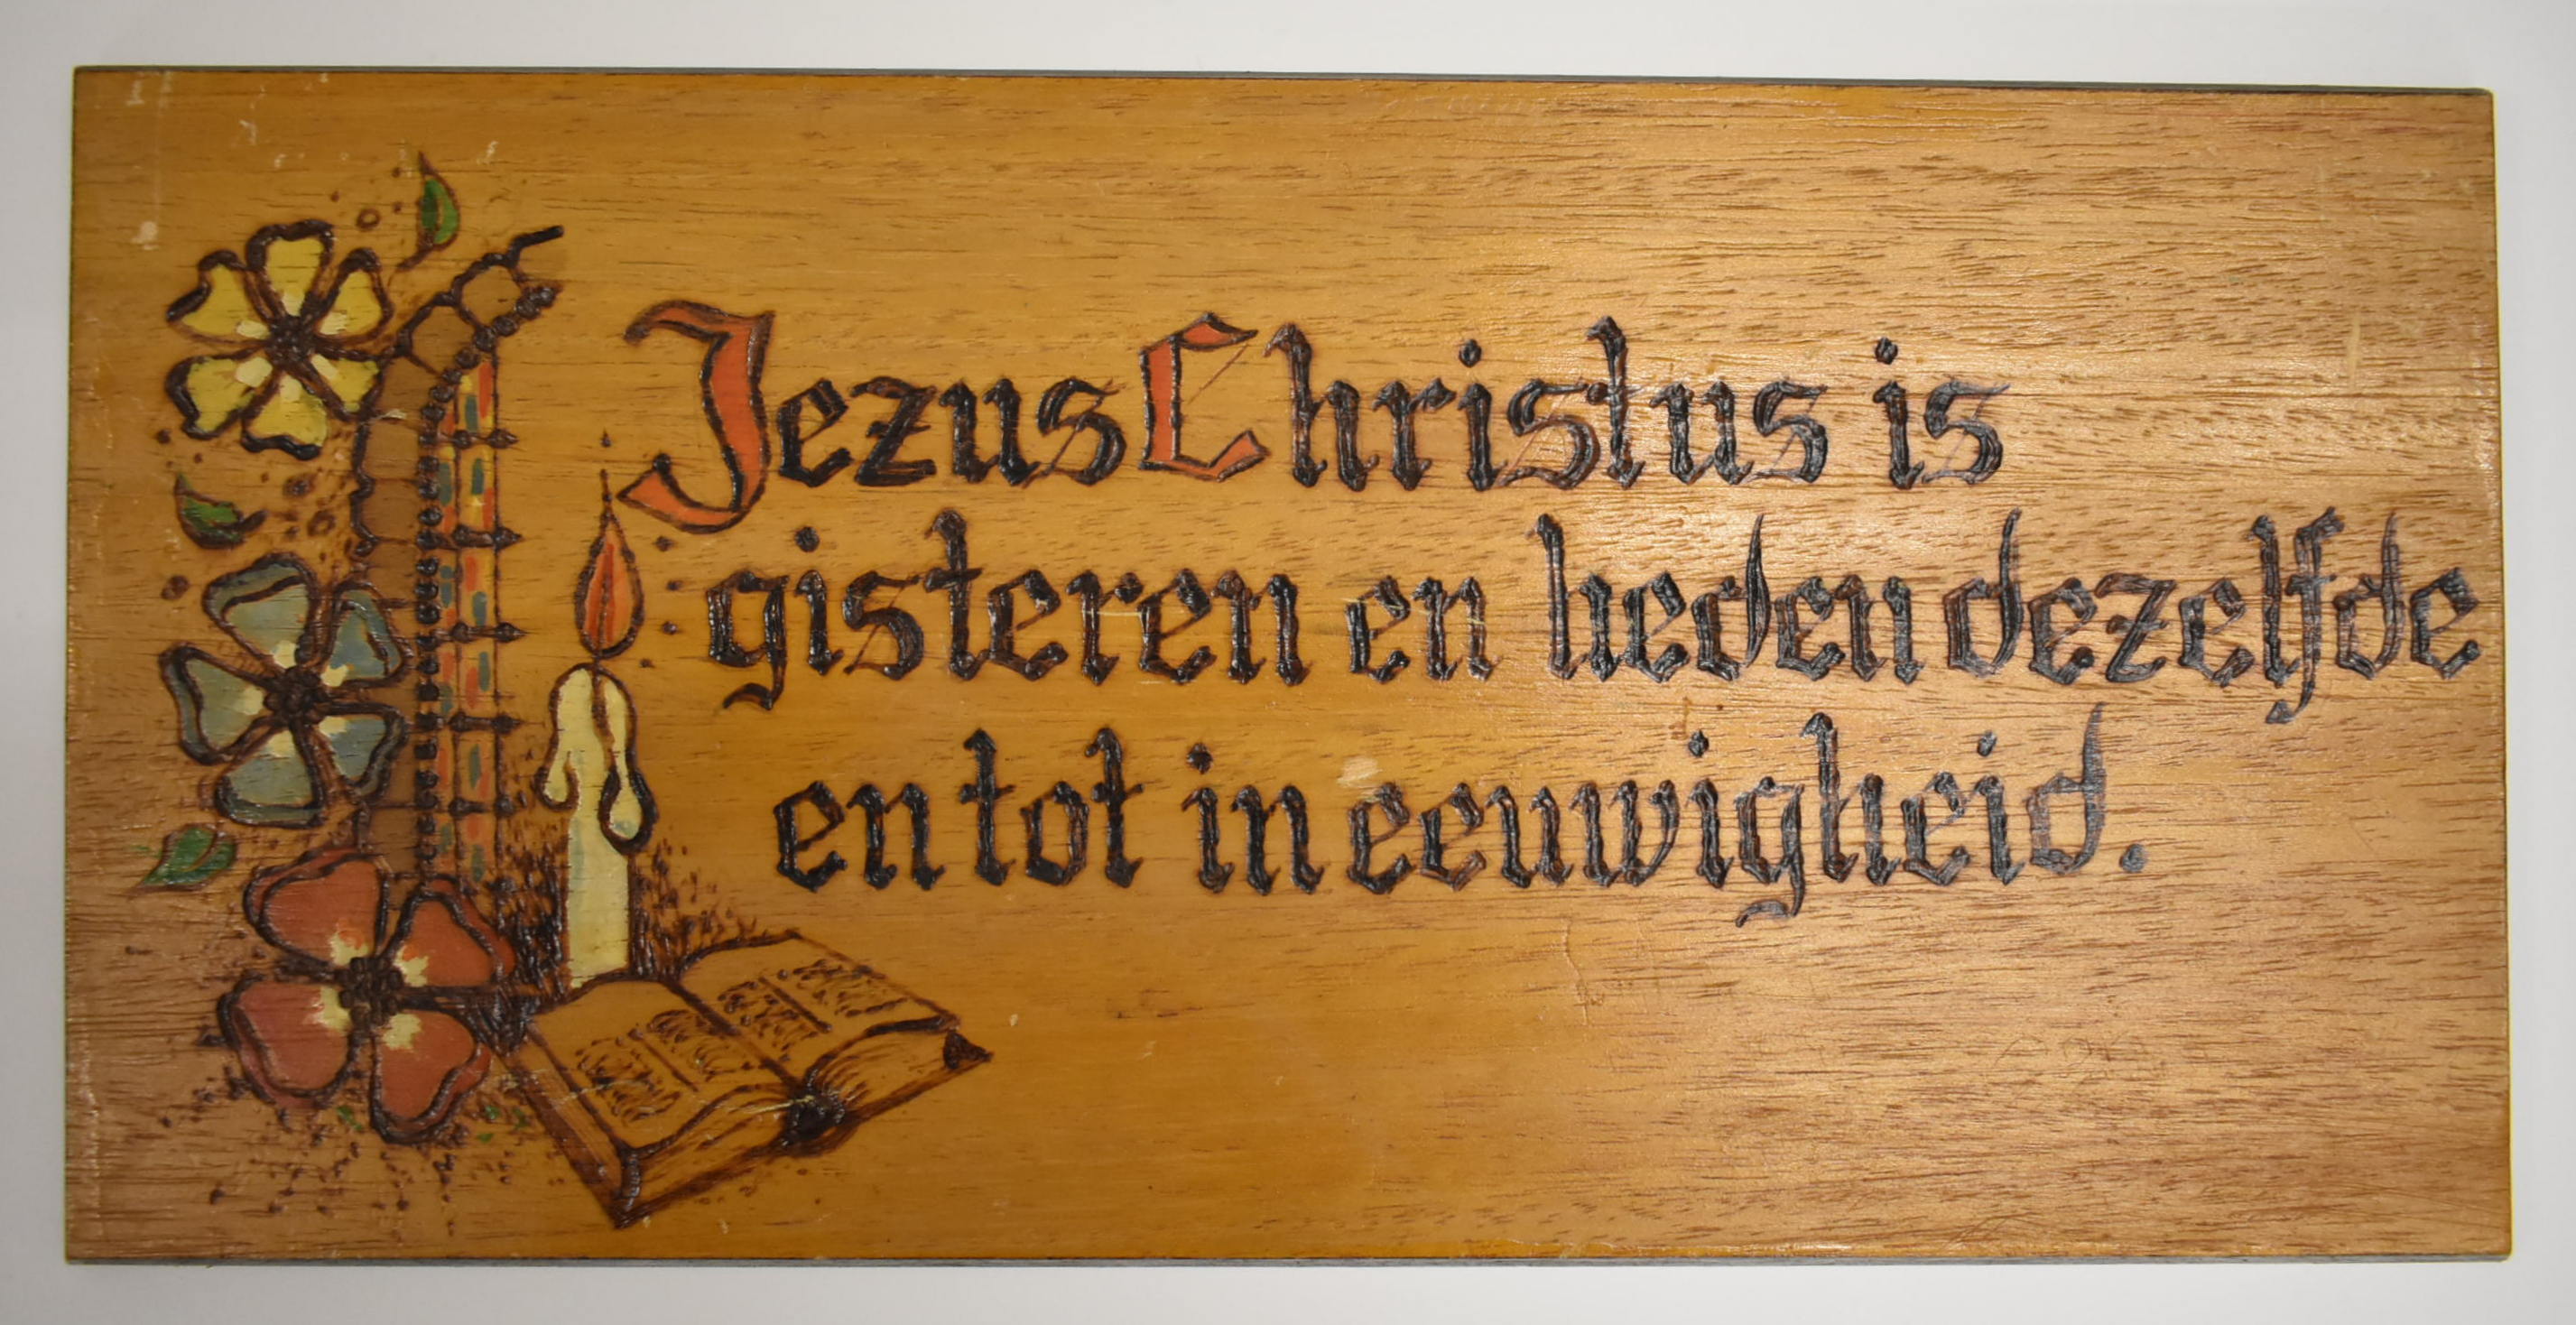 Jezus Christus is
gisteren en heden dezelfde
en tot in eeuwigheid.